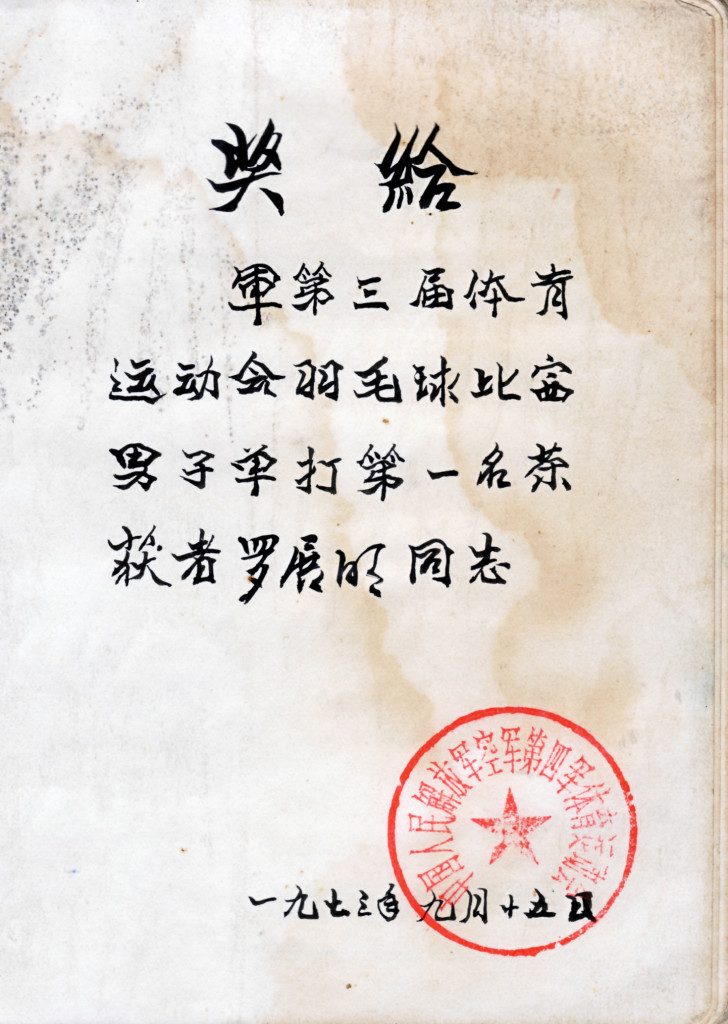 奖给
軍第三届体育
运动会羽毛球比赛
男子单打第一名荣
获者罗展明同志
中国人民解放军空军第四军体育运动会
一九七三年九月十五日